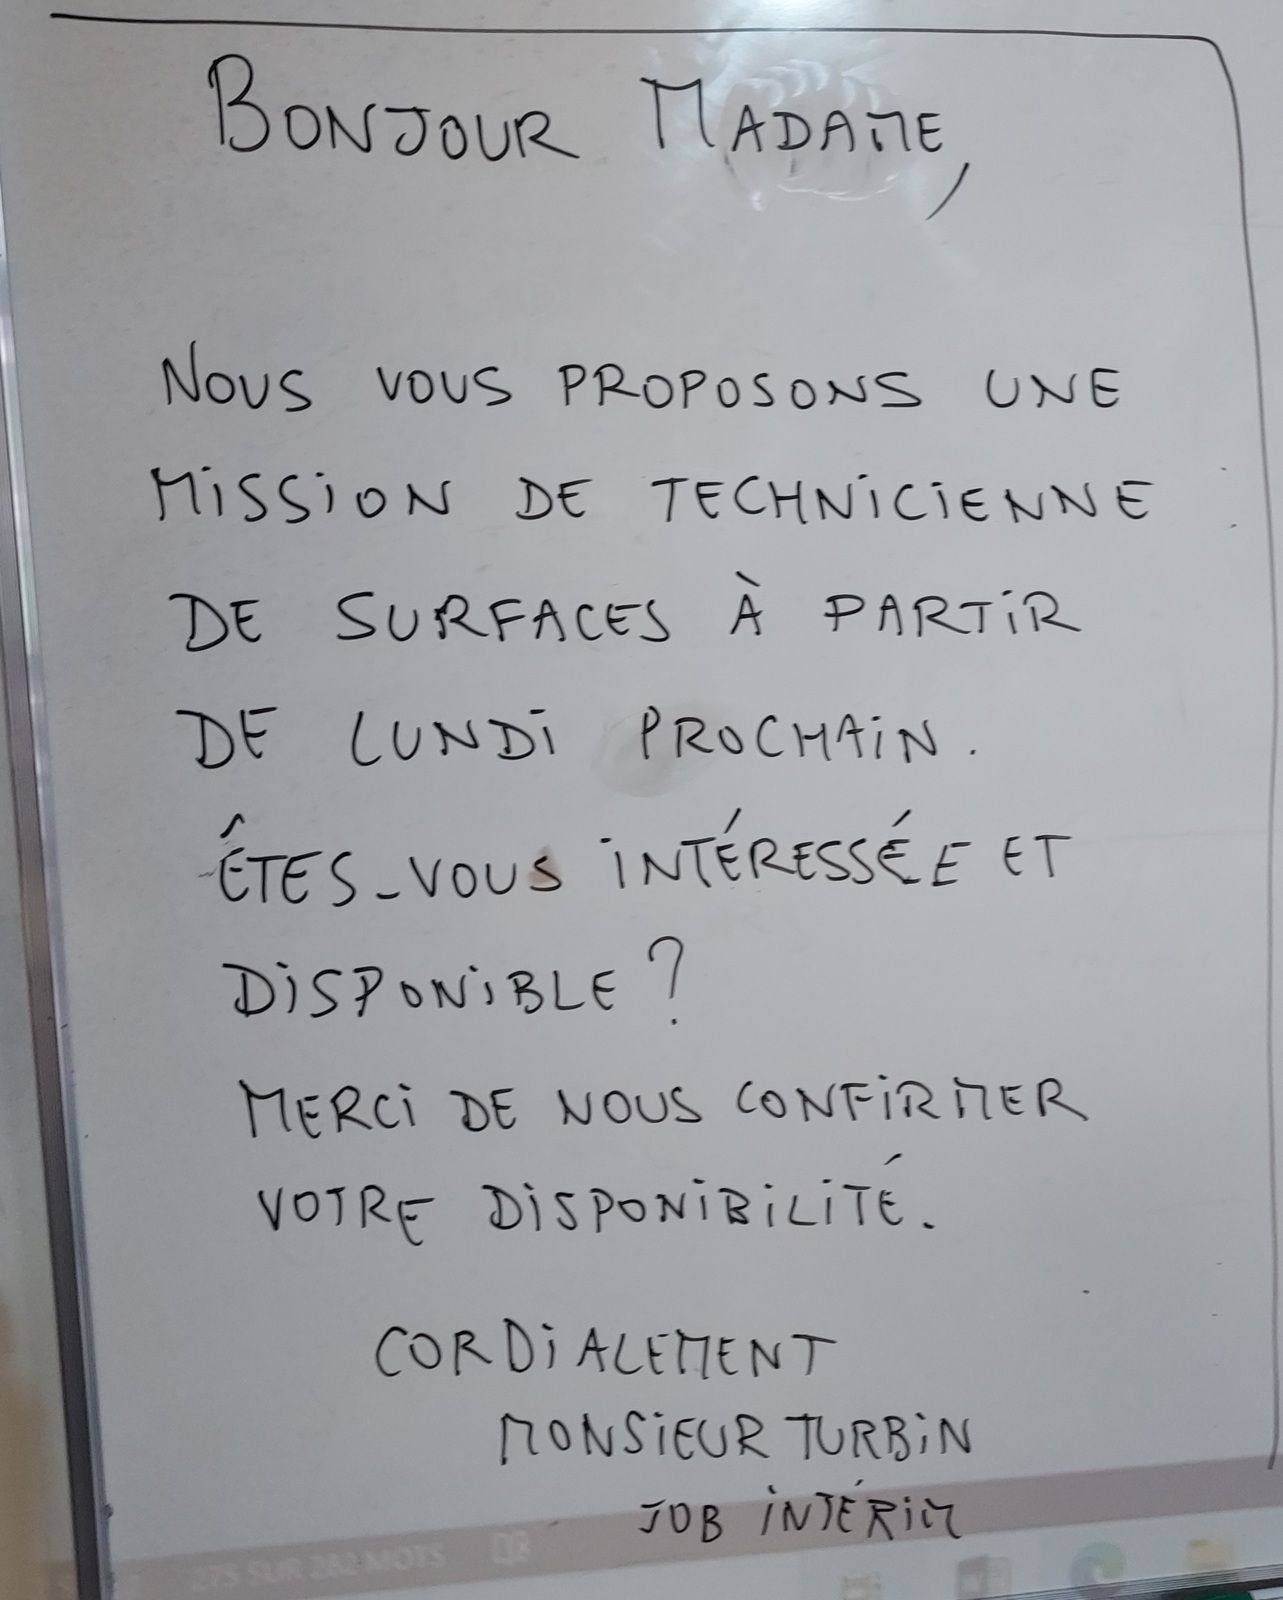 BONJOUR MADAME,
NOUS VOUS PROPOSONS UNE
MISSION DE TECHNICIENNE
DE SURFACES À PARTIR
DE LUNDI PROCHAIN.
ÊTES-VOUS INTÉRESSÉE ET
DISPONIBLE ?
MERCI DE NOUS CONFIRMER
VOTRE DISPONIBILITÉ.
CORDIALEMENT
MONSIEUR TURBIN
JOB INTÉRIM
275 SUR 282 MOTS